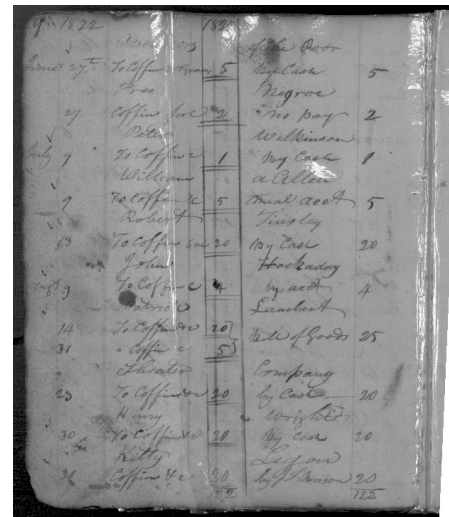 1822 1822
of The Poor
June 27th To Coffin & Grave 5 By Cash 5
Free Negroe
27 Coffin &c 2 no pay 2
Peter Wilkinson
July 9 To Coffin &c 1 By Cash 1
William a Allen
9 To Coffin &c 5 acct 5
Robert Tinsley
13 To Coffin 20 By Cash 20
John Hockaday
9 To Coffin &c 4 by acct 4
Patrick Lambert
14 To Coffin &c 20 of Goods 25
31 " Coffin &c 5
Theater Company
23 To Coffin &c 20 by Cash 20
Henry Wright
30 To Coffin &c 20 By Cash 20
Kitty
Coffin &c 20 by J Mason 20
122 122